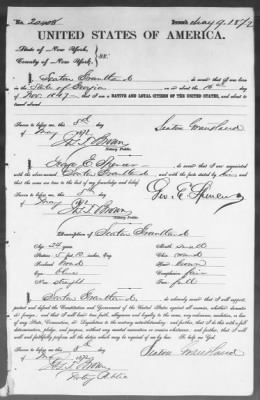 No. 20408 Issued May 9. 1872
UNITED STATES OF AMERICA.
State of New York,
County of New York, } SS:
I, Seaton Grantland do swear that I was born
in the State of Georgia on or about the 16th day
of Nov. 1847, that I am a NATIVE AND LOYAL CITIZEN OF THE UNITED STATES, and about to
travel abroad.
Sworn to before me, this 8th
day of May 1872 Seaton Grantland
Jas. L. Brown
Notary Public.
I, George E. Spencer do swear that I am acquainted
with the above-named Seaton Grantland and with the facts stated by him and that
the same are true to the best of my knowledge and belief.
Sworn to before me, this 8th
day of May 1872 Geo. E. Spencer
Jas. L. Brown
Notary Public.
Description of Seaton Grantland
Age: 24 years Mouth: small
Stature: 5 feet 10 inches, Eng. Chin: round
Forehead: broad Hair: brown
Eyes: blue Complexion: fair
Nose: straight Face: full
I, Seaton Grantland do solemnly swear that I will support,
protect and defend the Constitution and Government of the United States against all enemies, whether domestic
or foreign; and that I will bear true faith, allegiance and loyalty to the same, any ordinance, resolution, or law
of any State, Convention, or Legislature to the contrary notwithstanding; and further, that I do this with a full
determination, pledge, and purpose, without any mental reservation or evasion whatsoever; and further, that I will
well and faithfully perform all the duties which may be required of me by law. So help me God.
Sworn to before me, this 8th
day of May 1872 Seaton Grantland
Jas. L. Brown
Notary Public